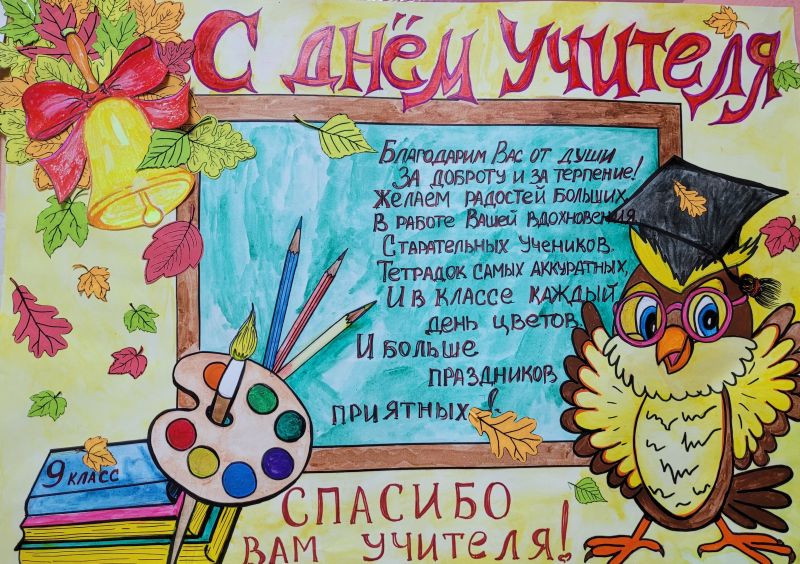 С ДНЁМ УЧИТЕЛЯ
Благодарим Вас от души
За доброту и за терпение!
Желаем радостей больших,
В работе Вашей вдохновения
Старательных учеников.
Тетрадок самых аккуратных,
И в классе каждый
день цветов
И больше
праздников
приятных!
9 класс
СПАСИБО
ВАМ УЧИТЕЛЯ!